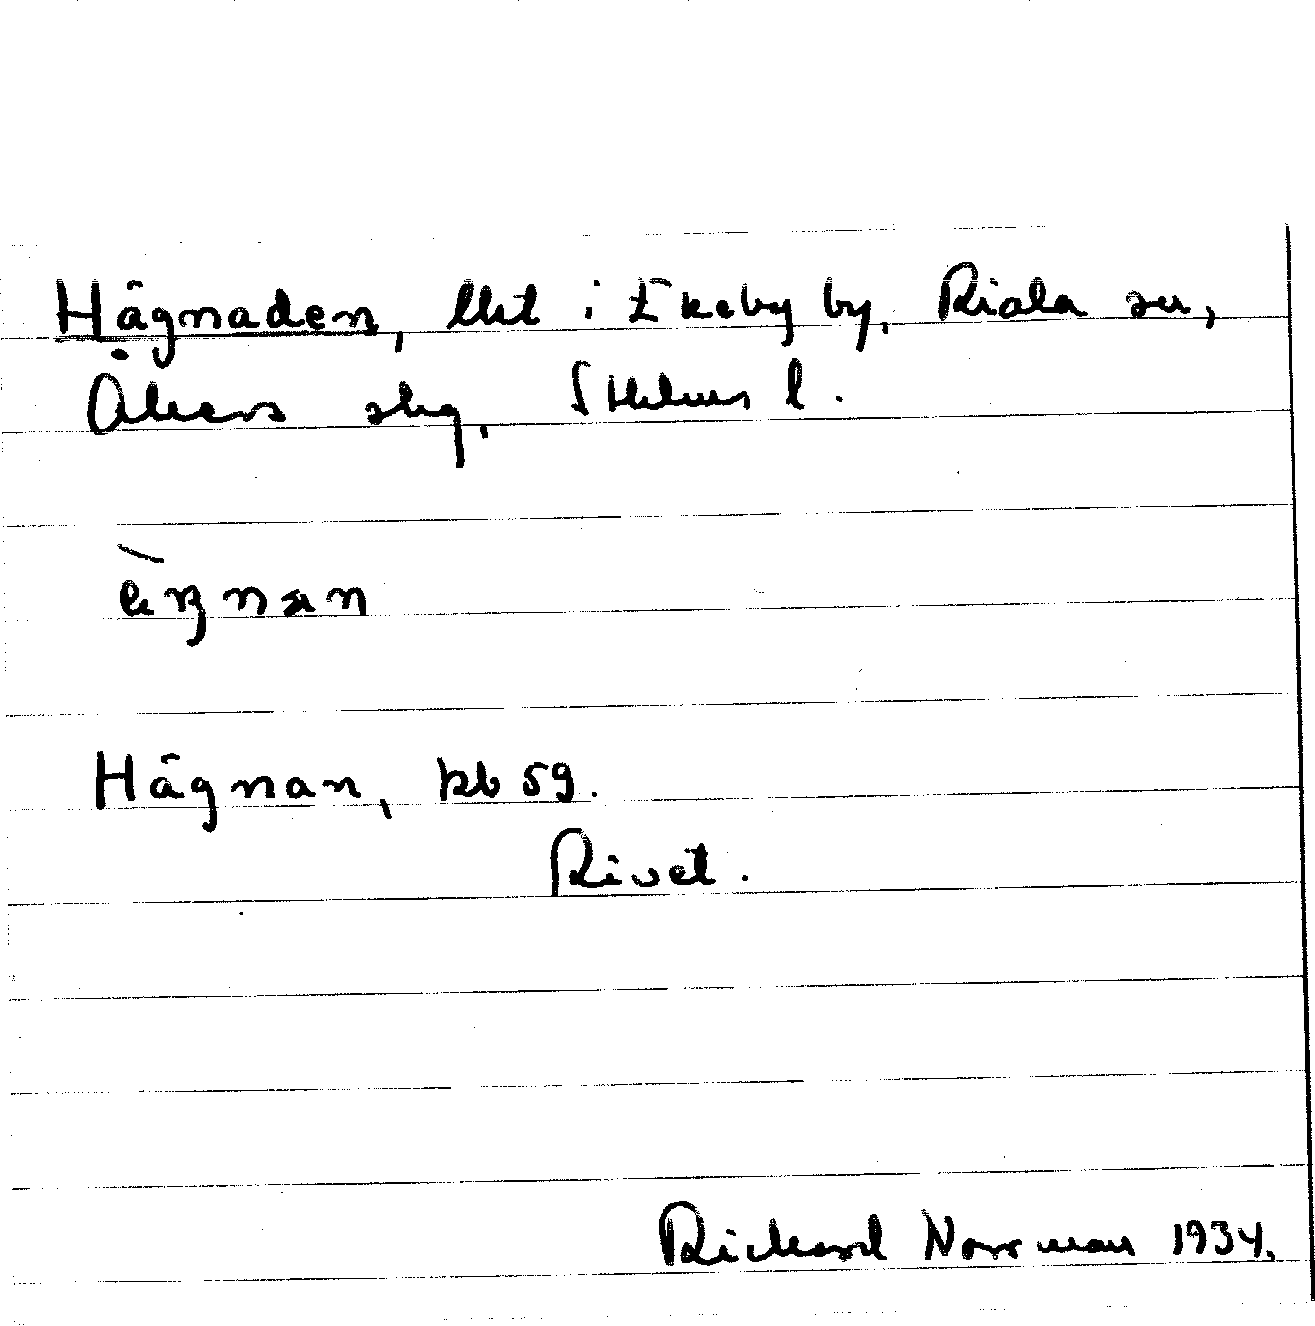 Hägnaden, lht i Ekeby by, Riala sn,
Åkers skg, Sthlms l.
Hägnan, kb 59.
Rivet.
Rickard Norrman 1934.